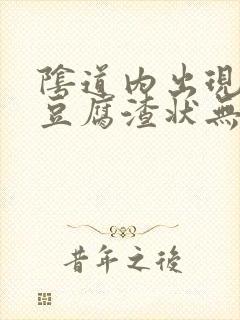 陰道內出現
豆腐渣狀無
昔年之後